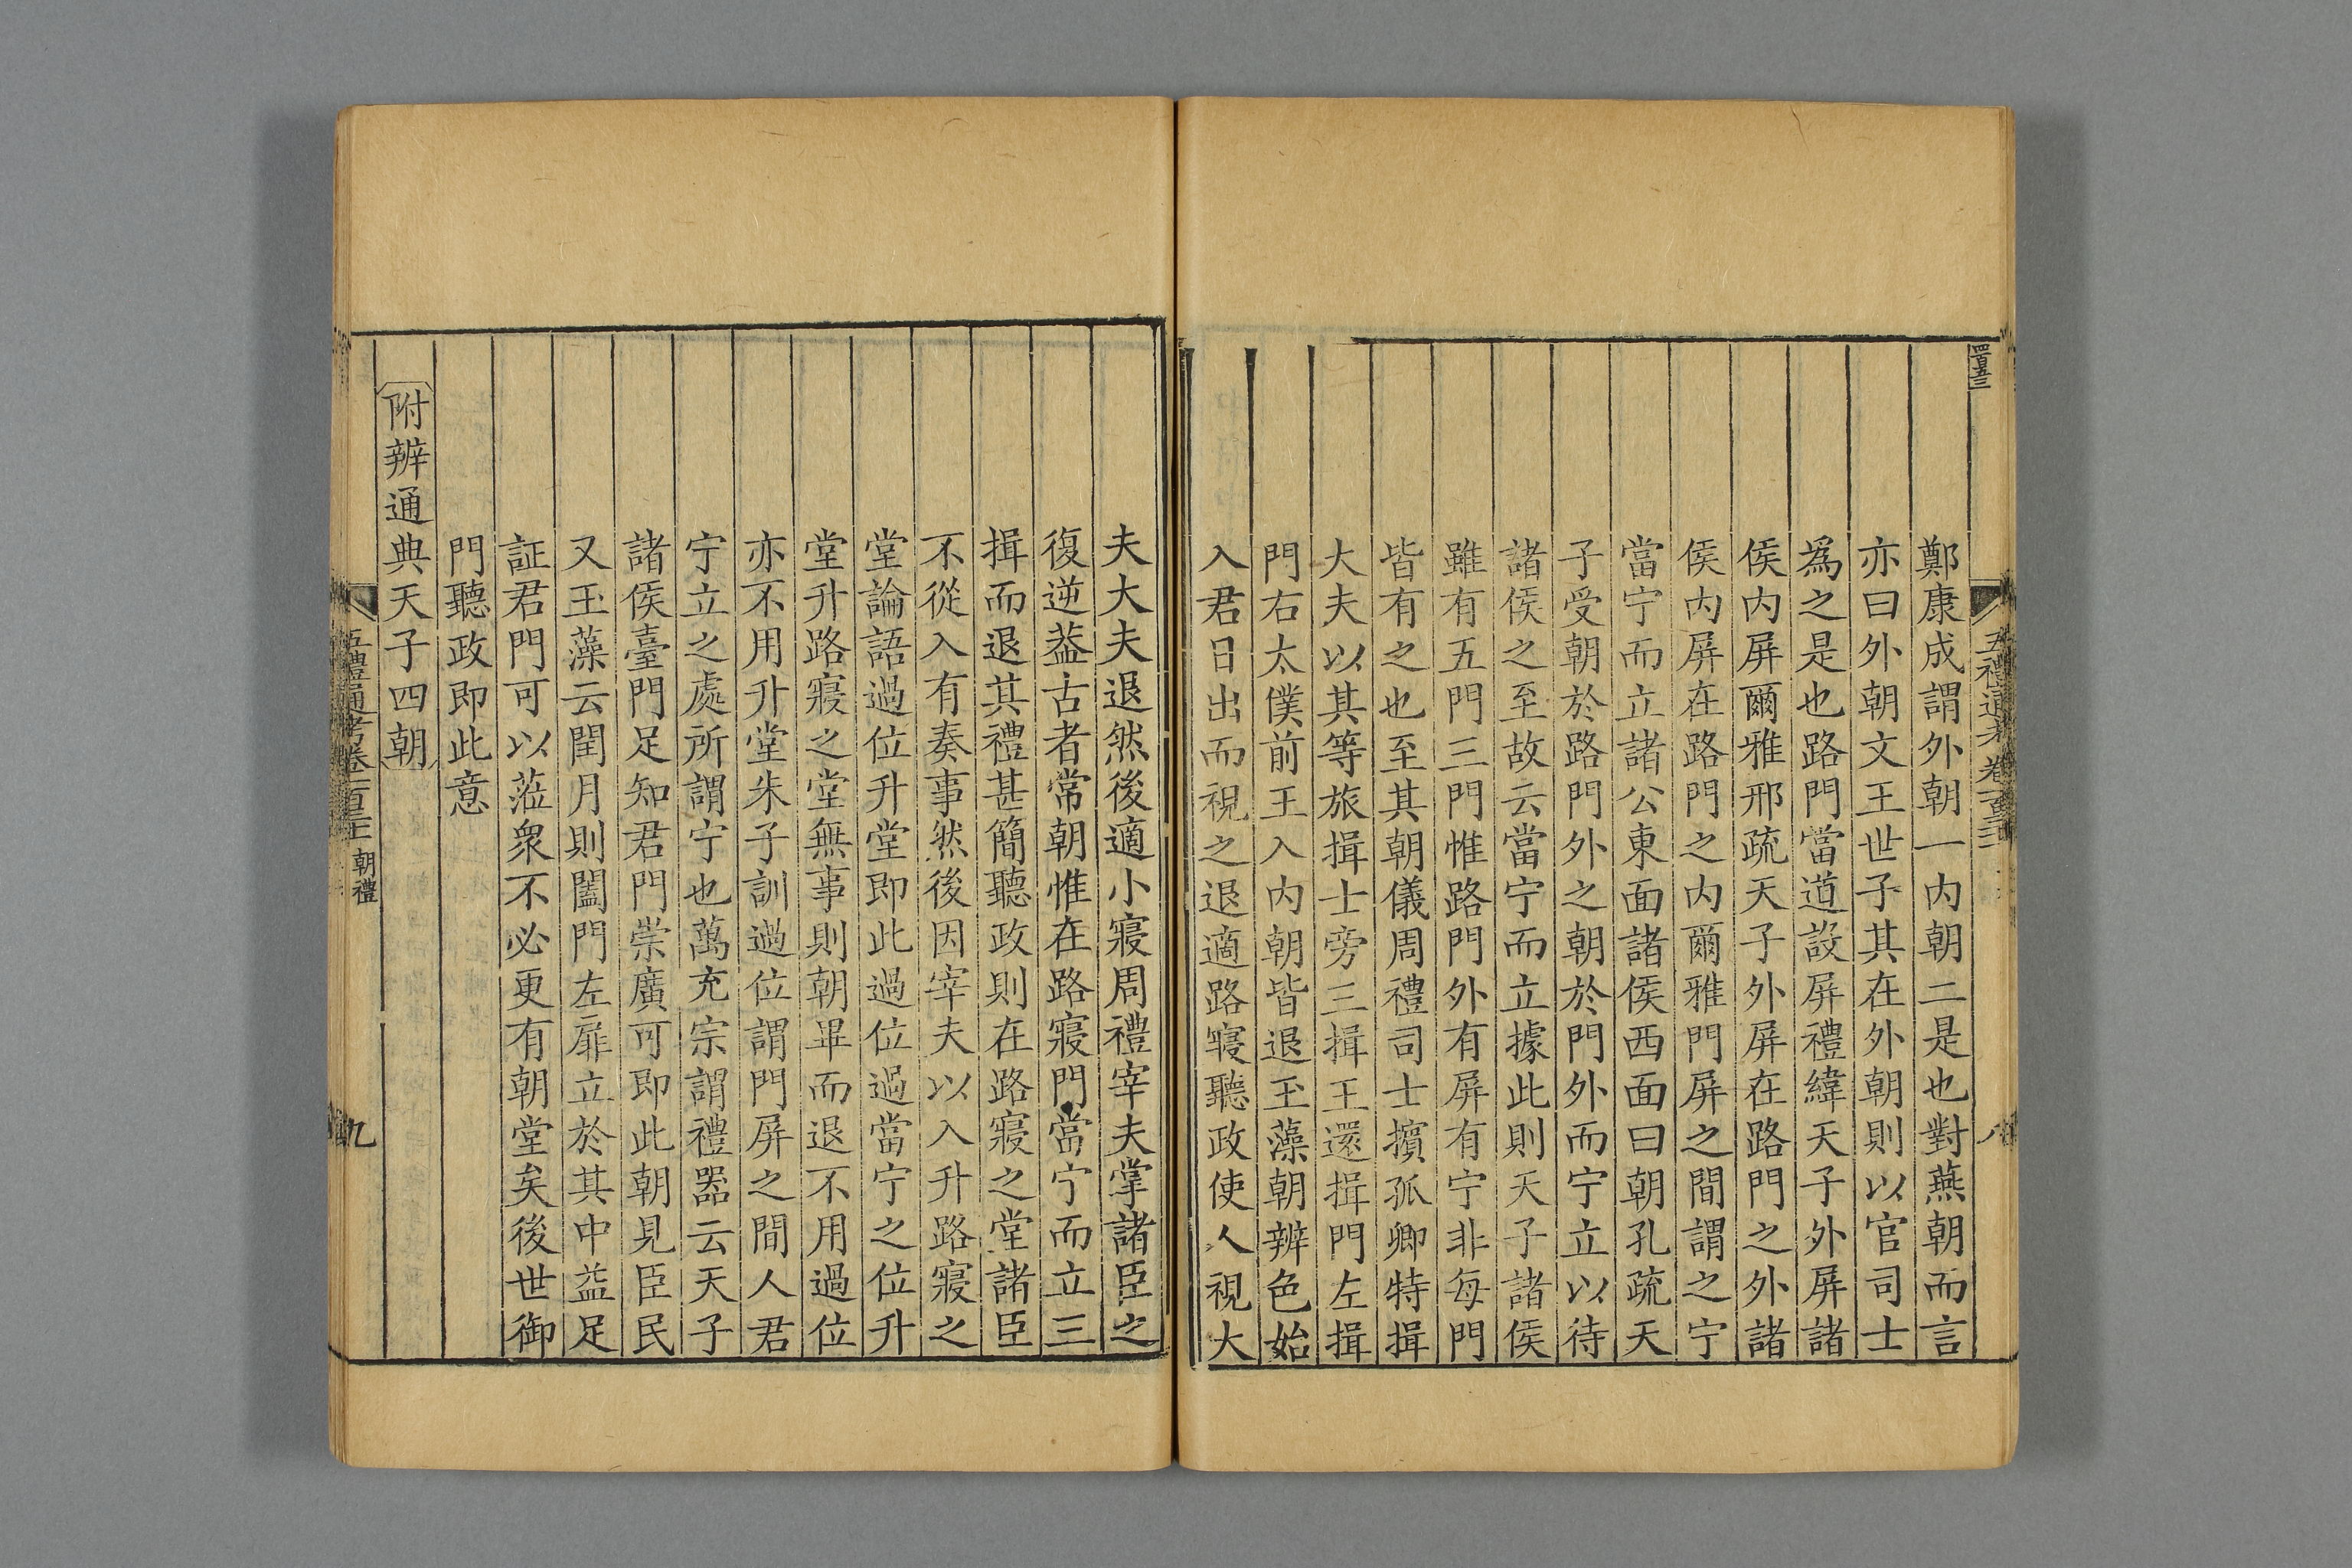 鄭康成謂外朝一内朝二是也對燕朝而言
亦曰外朝文王世子其在外朝則以官司士
爲之是也路門當道設屏禮緯天子外屏諸
侯内屏爾雅邢疏天子外屏在路門之外諸
侯内屏在路門之内爾雅門屏之間謂之宁
當宁而立諸公東面諸侯西面曰朝孔疏天
子受朝於路門外之朝於門外而宁立以待
諸侯之至故云當宁而立據此則天子諸侯
雖有五門三門惟路門外有屏有宁非每門
皆有之也至其朝儀周禮司士擯孤卿特揖
大夫以其等旅揖士旁三揖王還揖門左揖
門右太僕前王入内朝皆退玉藻朝辨色始
入君日出而視之退適路寢聽政使人視大
夫大夫退然後適小寢周禮宰夫掌諸臣之
復逆葢古者常朝惟在路寢門當宁而立三
揖而退其禮甚簡聽政則在路寢之堂諸臣
不從入有奏事然後因宰夫以入升路寢之
堂論語過位升堂即此過位過當宁之位升
堂升路寢之堂無事則朝畢而退不用過位
亦不用升堂朱子訓過位謂門屏之間人君
宁立之處所謂宁也萬充宗謂禮器云天子
諸侯臺門足知君門崇廣可即此朝見臣民
又玉藻云閏月則闔門左扉立於其中益足
証君門可以蒞衆不必更有朝堂矣後世御
門聽政即此意
附辨通典天子四朝
五禮通考卷一百三十二
朝禮
九